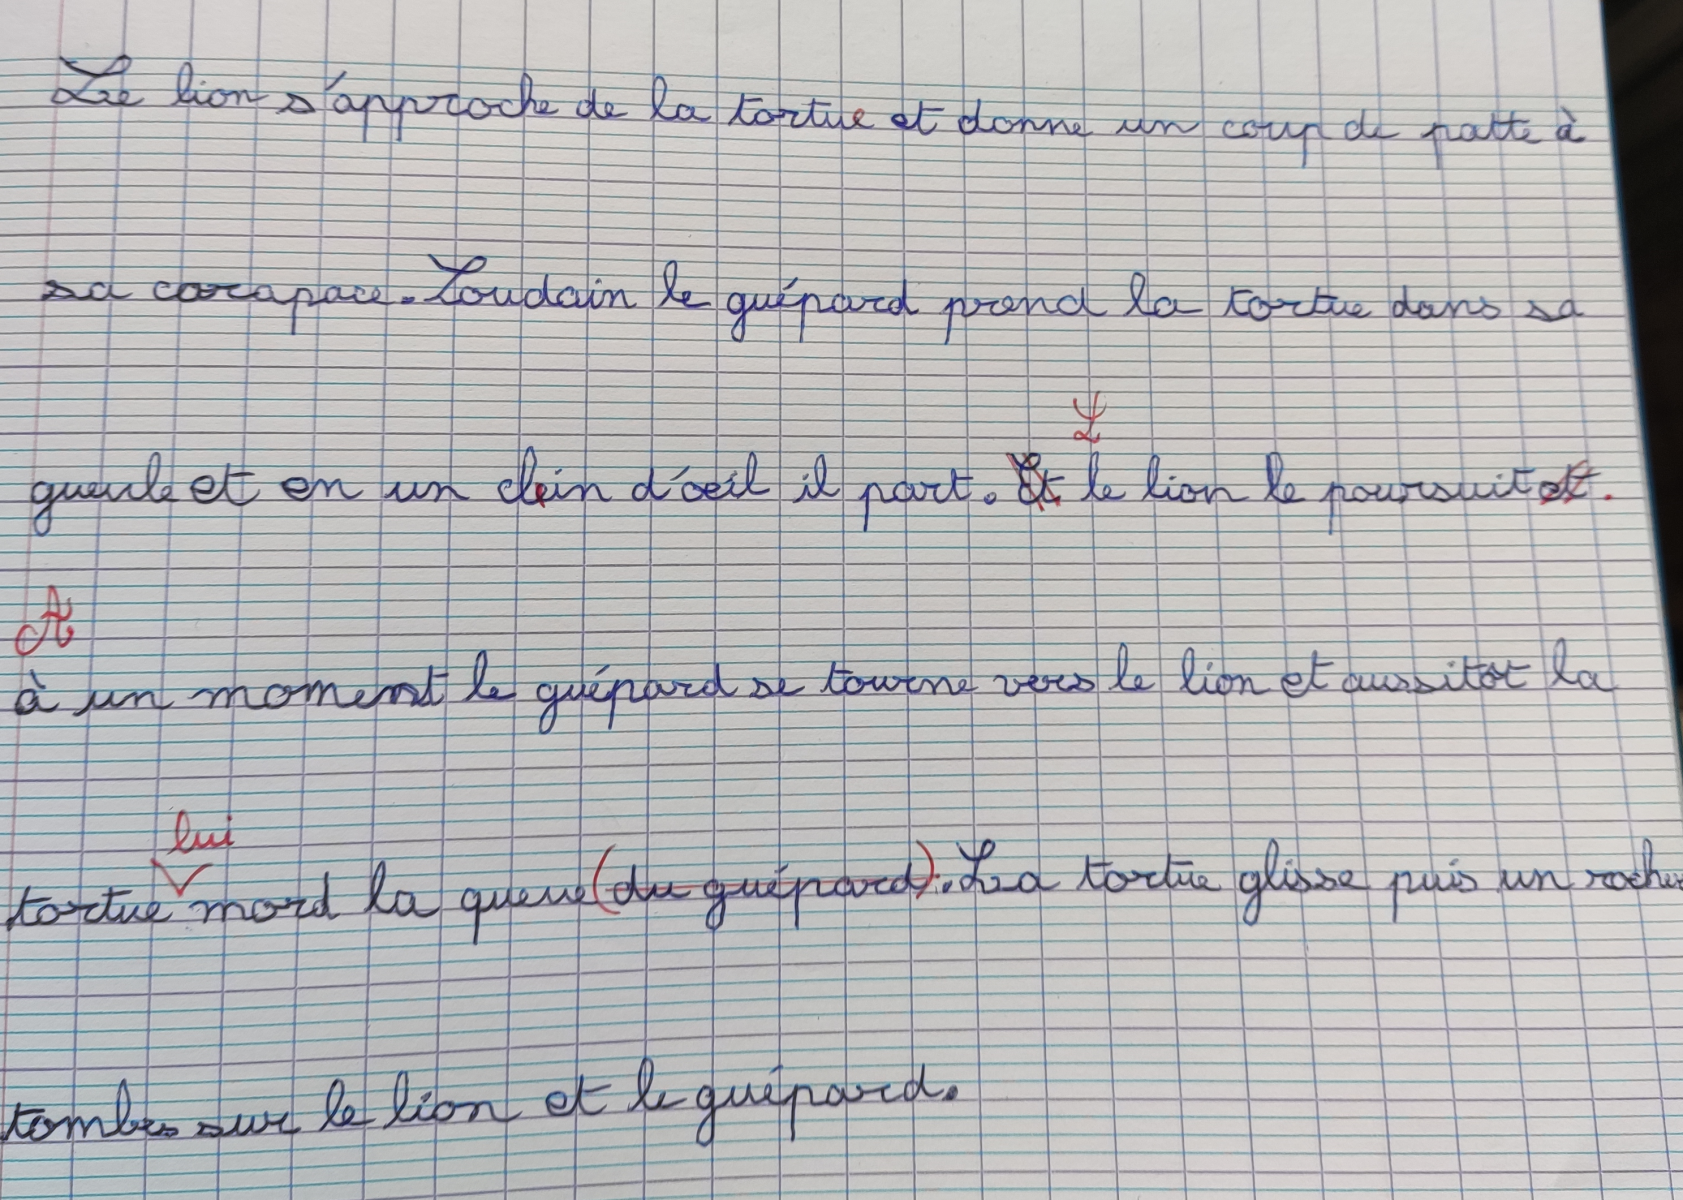 Le lion s'approche de la tortue et donne un coup de patte à
sa carapace. Soudain le guépard prend la tortue dans sa
L
gueule et en un clin d'oeil il part. Et le lion le poursuit et.
A
à un moment le guépard se tourne vers le lion et aussitot la
lui
tortue mord la queue (du guépard). La tortue glisse puis un rocher
tombe sur le lion et le guépard.